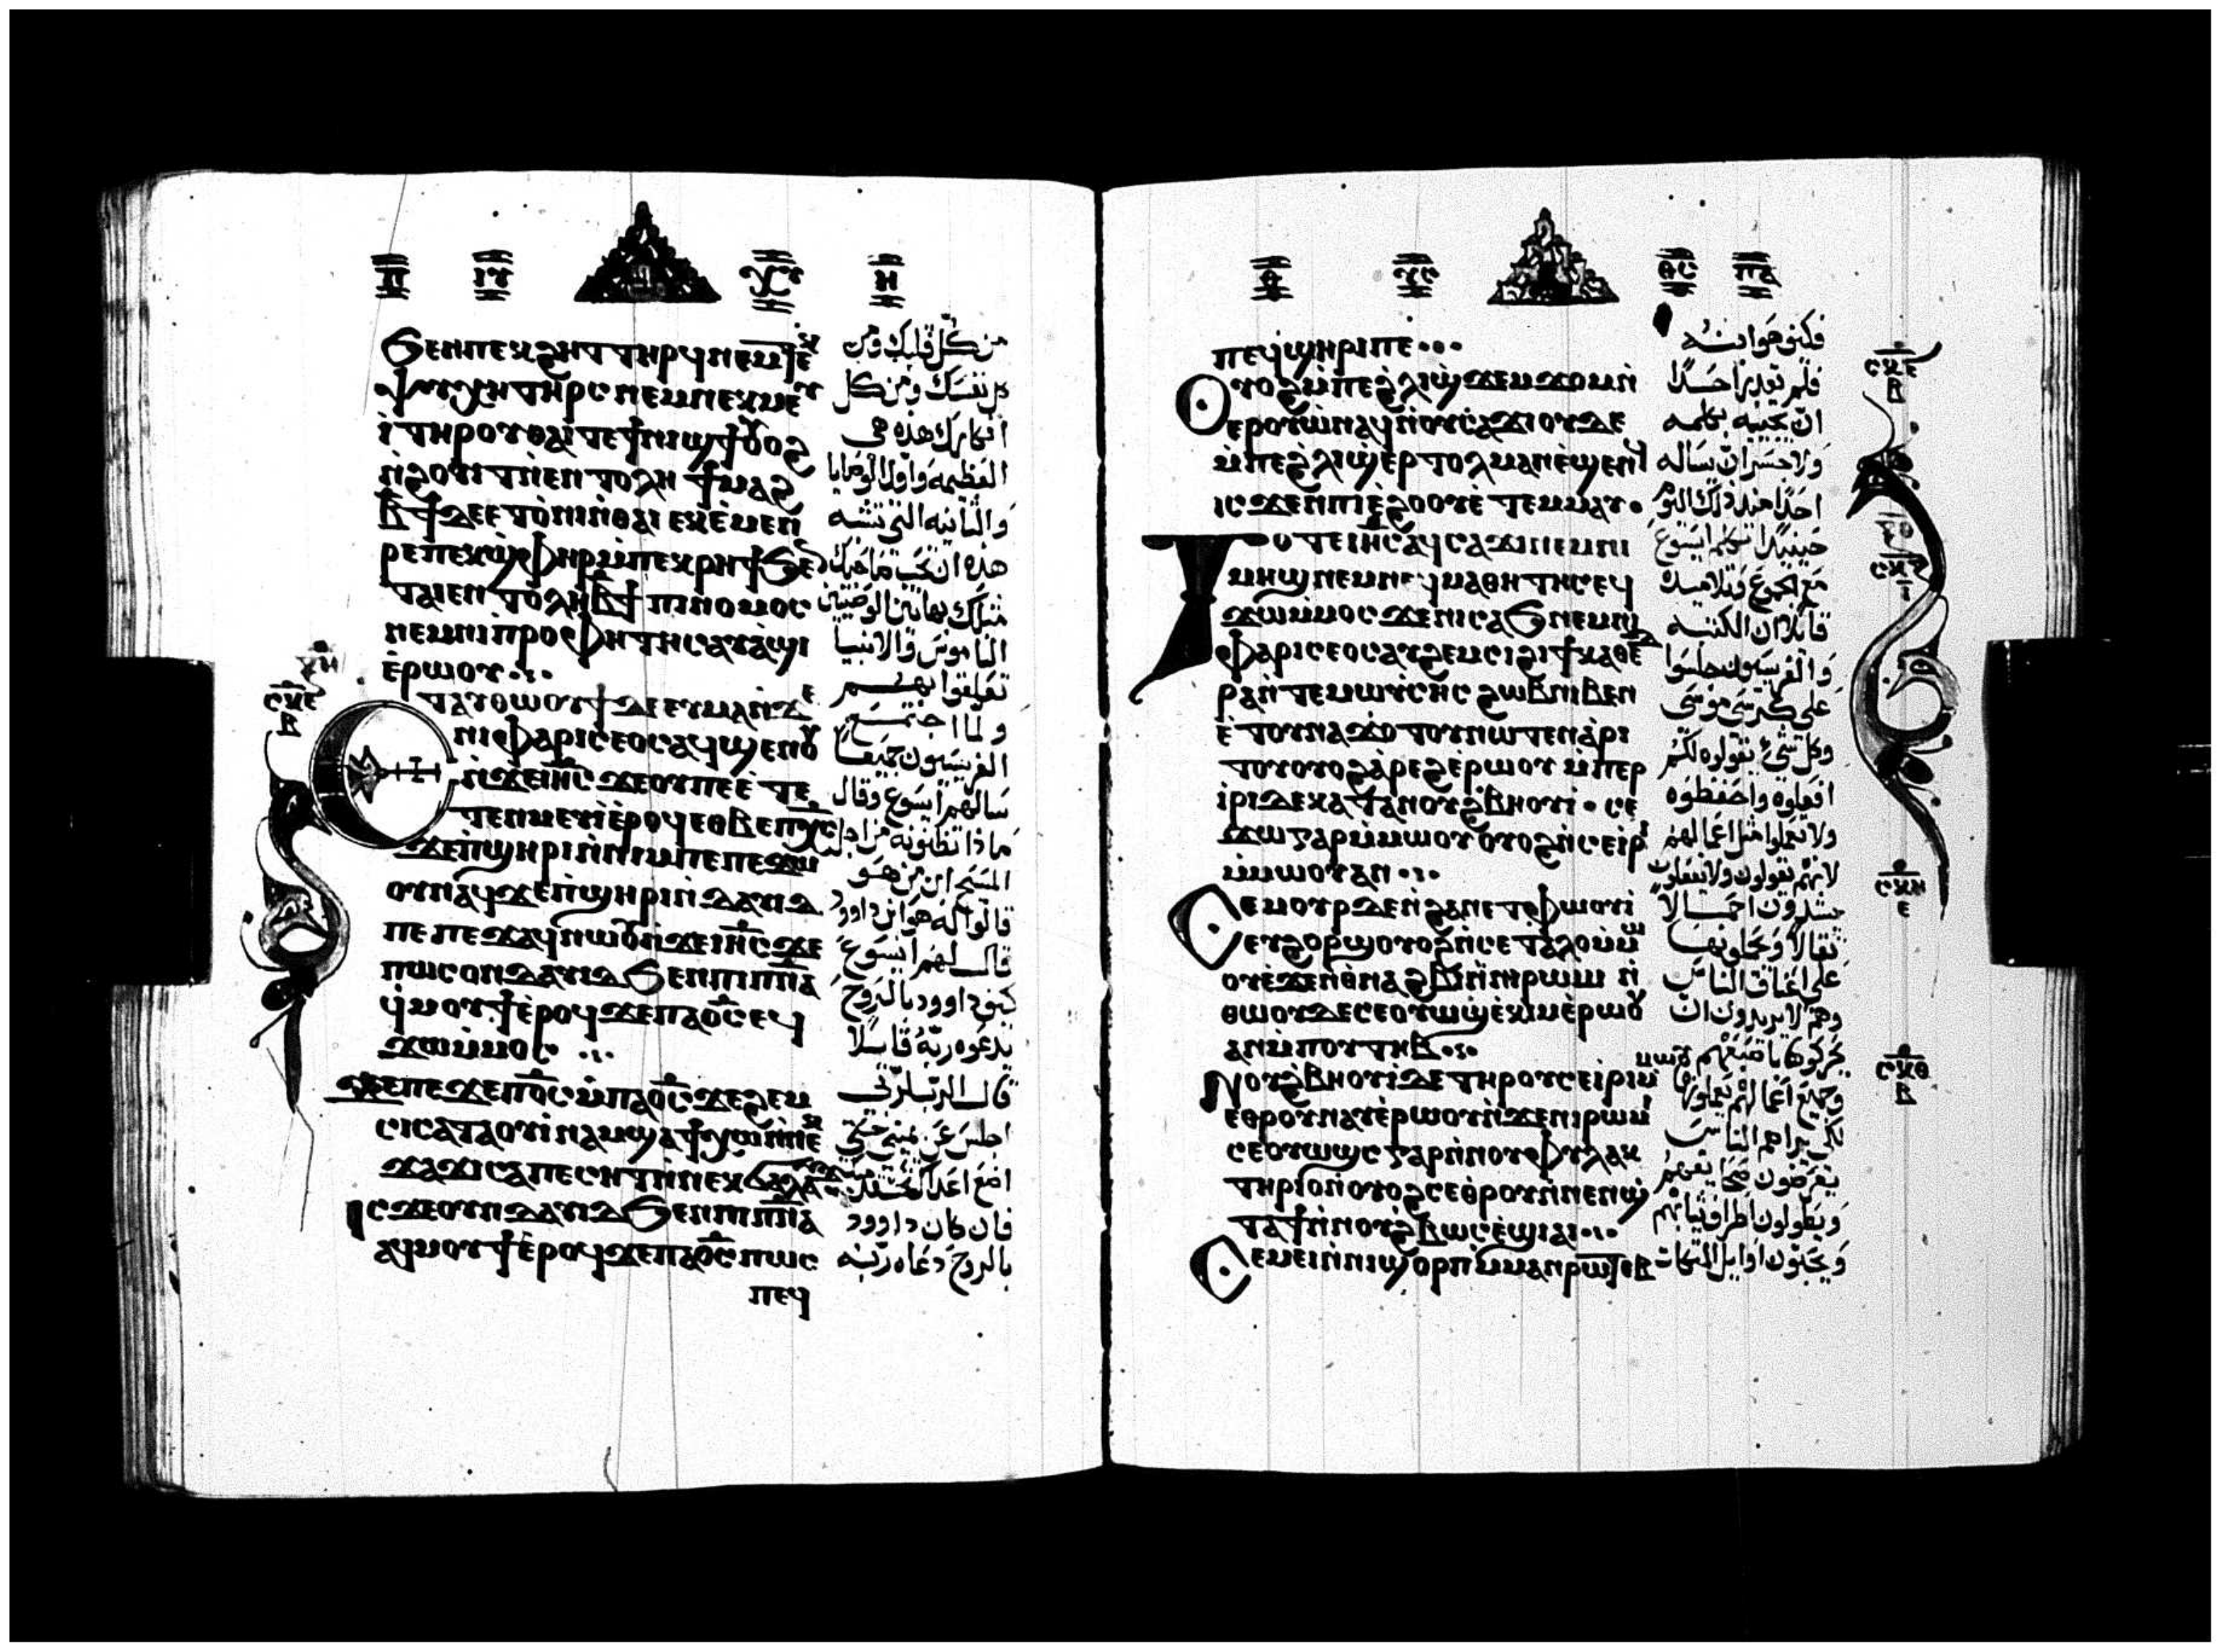 ⲡ ⲓⲩ ⲭⲥ ⲏ
ϧⲉⲛⲡⲉⲕϩⲏⲧ ⲧⲏⲣϥ ⲛⲉⲙⲧⲉⲕ
ⲯⲩⲭⲏ ⲧⲏⲣⲥ ⲛⲉⲙⲛⲉⲕⲙⲉⲩ
ⲓ̀ ⲧⲏⲣⲟⲩ ⲑⲁⲓ ⲧⲉ ϯⲛⲓϣϯ ⲟⲩⲟϩ
ⲛ̀ϩⲟⲩⲓϯ ⲛ̀ⲉⲛⲧⲟⲗⲏ ϯⲙⲁϩ
ⲃ̅ϯ ⲇⲉ ⲉⲧⲟ̀ⲛⲓ ⲛ̀ⲑⲁⲓ ⲉⲕⲉ̀ⲙⲉⲛ
ⲣⲉ ⲡⲉⲕϣ̀ⲫⲏⲣ ⲙ̀ⲡⲉⲕⲣⲏϯ ϧⲉⲛ
ⲧⲁⲓⲉⲛⲧⲟⲗⲏ ⲃ̅ϯ ⲡⲓⲛⲟⲙⲟⲥ
ⲛⲉⲙⲛⲓⲡ̀ⲣⲟⲫⲏⲧⲏⲥ ⲁⲩⲁ̀ϣⲓ
ⲉ̀ⲣⲱⲟⲩ
ⲉⲧⲁⲩⲑⲱⲟⲩϯ ⲇⲉ ⲉⲩⲙⲁ ⲛ̀ϫⲉ
ⲛⲓⲫⲁⲣⲓⲥⲉⲟⲥ ⲁϥϣⲉⲛⲟⲩ
ⲛ̀ϫⲉ ⲓⲏ̅ⲥ̅ ϫⲉ ⲟⲩ ⲡⲉⲉ̀ⲧⲉ
ⲧⲉⲛⲙⲉⲩⲓ̀ ⲉ̀ⲣⲟϥ ⲉⲑⲃⲉ ⲡⲭ̅ⲥ̅
ϫⲉ ⲡ̀ϣⲏⲣⲓ ⲛ̀ⲛⲓⲙ ⲡⲉ ⲡⲉϫⲱ
ⲟⲩ ⲛⲁϥ ϫⲉ ⲡ̀ϣⲏⲣⲓ ⲛ̀ⲇⲁⲩⲓⲇ
ⲡⲉ ⲡⲉϫⲁϥ ⲛⲱⲟⲩ ⲛ̀ϫⲉ ⲓⲏ̅ⲥ̅ ϫⲉ
ⲡⲱⲥ ⲟⲩⲛ ⲇⲁⲩⲓⲇ ϧⲉⲛ ⲡⲓⲡ̅ⲛ̅ⲁ̅
ϥ̀ⲙⲟⲩϯ ⲉ̀ⲣⲟϥ ϫⲉ ⲡⲁϭ̅ⲥ̅ ⲉϥ
ϫⲱ ⲙ̀ⲙⲟⲥ
ϫⲉ ⲡⲉϫⲉ ⲡϭ̅ⲥ̅ ⲙ̀ⲡⲁϭ̅ⲥ̅ ϫⲉ ϩⲉⲙ
ⲥⲓ ⲥⲁⲧⲁⲟⲩⲓ̀ⲛⲁⲙ ϣⲁϯⲭⲱ ⲛ̀ⲛⲉⲕ
ϫⲁϫⲓ ⲥⲁⲡⲉⲥⲏⲧ ⲛ̀ⲛⲉⲕϭⲁⲗⲁⲩϫ
ⲓⲥϫⲉ ⲟⲩⲛ ⲇⲁⲩⲓⲇ ϧⲉⲛ ⲡⲓⲡ̅ⲛ̅ⲁ̅
ⲁϥⲙⲟⲩϯ ⲉ̀ⲣⲟϥ ϫⲉ ⲡⲁϭ̅ⲥ̅ ⲡⲱⲥ
ⲡⲉϥ
من كل قلبك ومن
كل نفسك ومن كل
افكارك هذه هى
العظيمه واولا الوصايا
والثانيه التى تشبه
هذه ان تحب صاحبك
مثلك بهاتين الوصيتين
الناموس والانبيا
تعلقوا بهم
ولما اجتمع
الفريسيون جميعا
سالهم ايسوع وقال
ماذا تظنونه من اجل
المسيح ابن من هو
قالوا له هو ابن داوود
قال لهم ايسوع
كيف داوود بالروح
يدعوه ربه قايلا
قال الرب لربى
اجلس عن يمينى حتى
اضع اعداك تحت قدميك
فان كان داوود
بالروح دعاه ربه
ⲑ ⲩⲥ ⲑⲥ ⲡⲁ
ⲡⲉϥϣⲏⲣⲓ ⲡⲉ
ⲟⲩⲟϩ ⲙ̀ⲡⲉϩ̀ⲗⲓ ϣ̀ϫⲉⲙϫⲟⲙ ⲛ̀
ⲉⲣⲟⲩⲱ̀ ⲛⲁϥ ⲛ̀ⲟⲩⲥⲁϫⲓ ⲟⲩⲇⲉ
ⲙ̀ⲡⲉϩ̀ⲗⲓ ϣ̀ⲉⲣⲧⲟⲗⲙⲁⲛ ⲉ̀ϣⲉⲛϥ
ⲓⲥϫⲉⲛ ⲡⲓⲉ̀ϩⲟⲟⲩ ⲉ̀ⲧⲉⲙⲙⲁⲩ
ⲧⲟⲧⲉ ⲓⲏ̅ⲥ̅ ⲁϥⲥⲁϫⲓ ⲛⲉⲙ ⲡⲓ
ⲙⲏϣ ⲛⲉⲙ ⲛⲉϥⲙⲁⲑⲏⲧⲏⲥ ⲉϥ
ϫⲱ ⲙ̀ⲙⲟⲥ ϫⲉ ⲛⲓⲥⲁϧ ⲛⲉⲙ ⲛⲓ
ⲫⲁⲣⲓⲥⲉⲟⲥ ⲁⲩϩⲉⲙⲥⲓ ϩⲓ ϯⲕⲁⲑⲉⲇ
ⲣⲁ ⲛ̀ⲧⲉ ⲙⲱⲩ̀ⲥⲏⲥ ϩⲱⲃ ⲛⲓⲃⲉⲛ
ⲉ̀ⲧⲟⲩⲛⲁϫⲟ̀ⲧⲟⲩ ⲛⲱⲧⲉⲛ ⲁ̀ⲣⲓ
ⲧⲟⲩ ⲟⲩⲟϩ ⲁ̀ⲣⲉϩ ⲉ̀ⲣⲱⲟⲩ ⲙ̀ⲡⲉⲣ
ⲓ̀ⲣⲓ ⲇⲉ ⲕⲁⲧⲁ ⲛⲟⲩϩ̀ⲃⲏⲟⲩⲓ̀ ⲥⲉ
ϫⲱ ⲅⲁⲣ ⲙ̀ⲙⲱⲟⲩ ⲟⲩⲟϩ ⲛ̀ⲥⲉⲓ̀ⲣⲓ
ⲙ̀ⲙⲱⲟⲩ ⲁⲛ
ⲥⲉⲙⲟⲩⲣ ⲇⲉ ⲛ̀ϩⲁⲛⲉⲧⲫⲱⲟⲩⲓ̀
ⲉⲩϩⲟⲣϣ ⲟⲩⲟϩ ⲛ̀ⲥⲉⲧⲁⲗⲟ ⲙ̀ⲙⲱ
ⲟⲩ ⲉ̀ϫⲉⲛ ⲑ̀ⲛⲁϩⲃⲓ ⲛ̀ⲛⲓⲣⲱⲙⲓ ⲛ̀
ⲑⲱⲟⲩ ⲇⲉ ⲥⲉⲟⲩⲱϣ ⲉ̀ⲕⲓⲙ ⲉ̀ⲣⲱⲟⲩ
ⲁⲛ ⲙ̀ⲡⲟⲩⲧⲏⲃ
ⲛⲟⲩϩ̀ⲃⲏⲟⲩⲓ̀ ⲇⲉ ⲧⲏⲣⲟⲩ ⲥⲉⲓ̀ⲣⲓ ⲙ̀ⲙⲱⲟⲩ
ⲉⲑⲣⲟⲩⲛⲁⲩ ⲉ̀ⲣⲱⲟⲩ ⲛ̀ϫⲉ ⲛⲓⲣⲱⲙⲓ
ⲥⲉⲟⲩⲱϣⲥ ⲅⲁⲣ ⲛ̀ⲛⲟⲩⲫⲩⲗⲁⲕ
ⲧⲏⲣⲓⲟⲛ ⲟⲩⲟϩ ⲥⲉⲑ̀ⲣⲟⲩⲛ̀ⲛⲉⲛϣ̀
ⲧⲁϯ ⲛ̀ⲛⲟⲩϩ̀ⲃⲱⲥ ⲉ̀ϣⲓⲁⲓ
ⲥⲉⲙⲉⲓ ⲛ̀ⲛⲓϣⲟⲣⲡ ⲙ̀ⲙⲁⲛⲣⲱⲧⲉⲃ
فكيف هو ابنه
فلم يقدر احدًا
ان يجيبه بكلمه
ولا جسر ان يساله
احدا منذ ذلك اليوم
حينيذا تكلم ايسوع
مع الجموع وتلاميذه
قايلا ان الكتبه
والفريسيون جلسوا
على كرسى موسى
وكل شئ يقولوه لكم
افعلوه واحفظوه
ولا تعملوا مثل اعمالهم
لانهم يقولون ولا يفعلون
يشدون احمالا
ثقالا ويحملونها
على اعناق الناس
وهم لا يريدون ان
يحركوها باصبعهم
وجميع اعمالهم يعملوها
لكى يراهم الناس
يعرضون
ويطولون اطراف ثيابهم
ويحبون اوايل المتكات
ⲥⲕⲉ
ⲃ
ⲥⲕⲏ
ⲉ
ⲥⲕⲑ
ⲃ